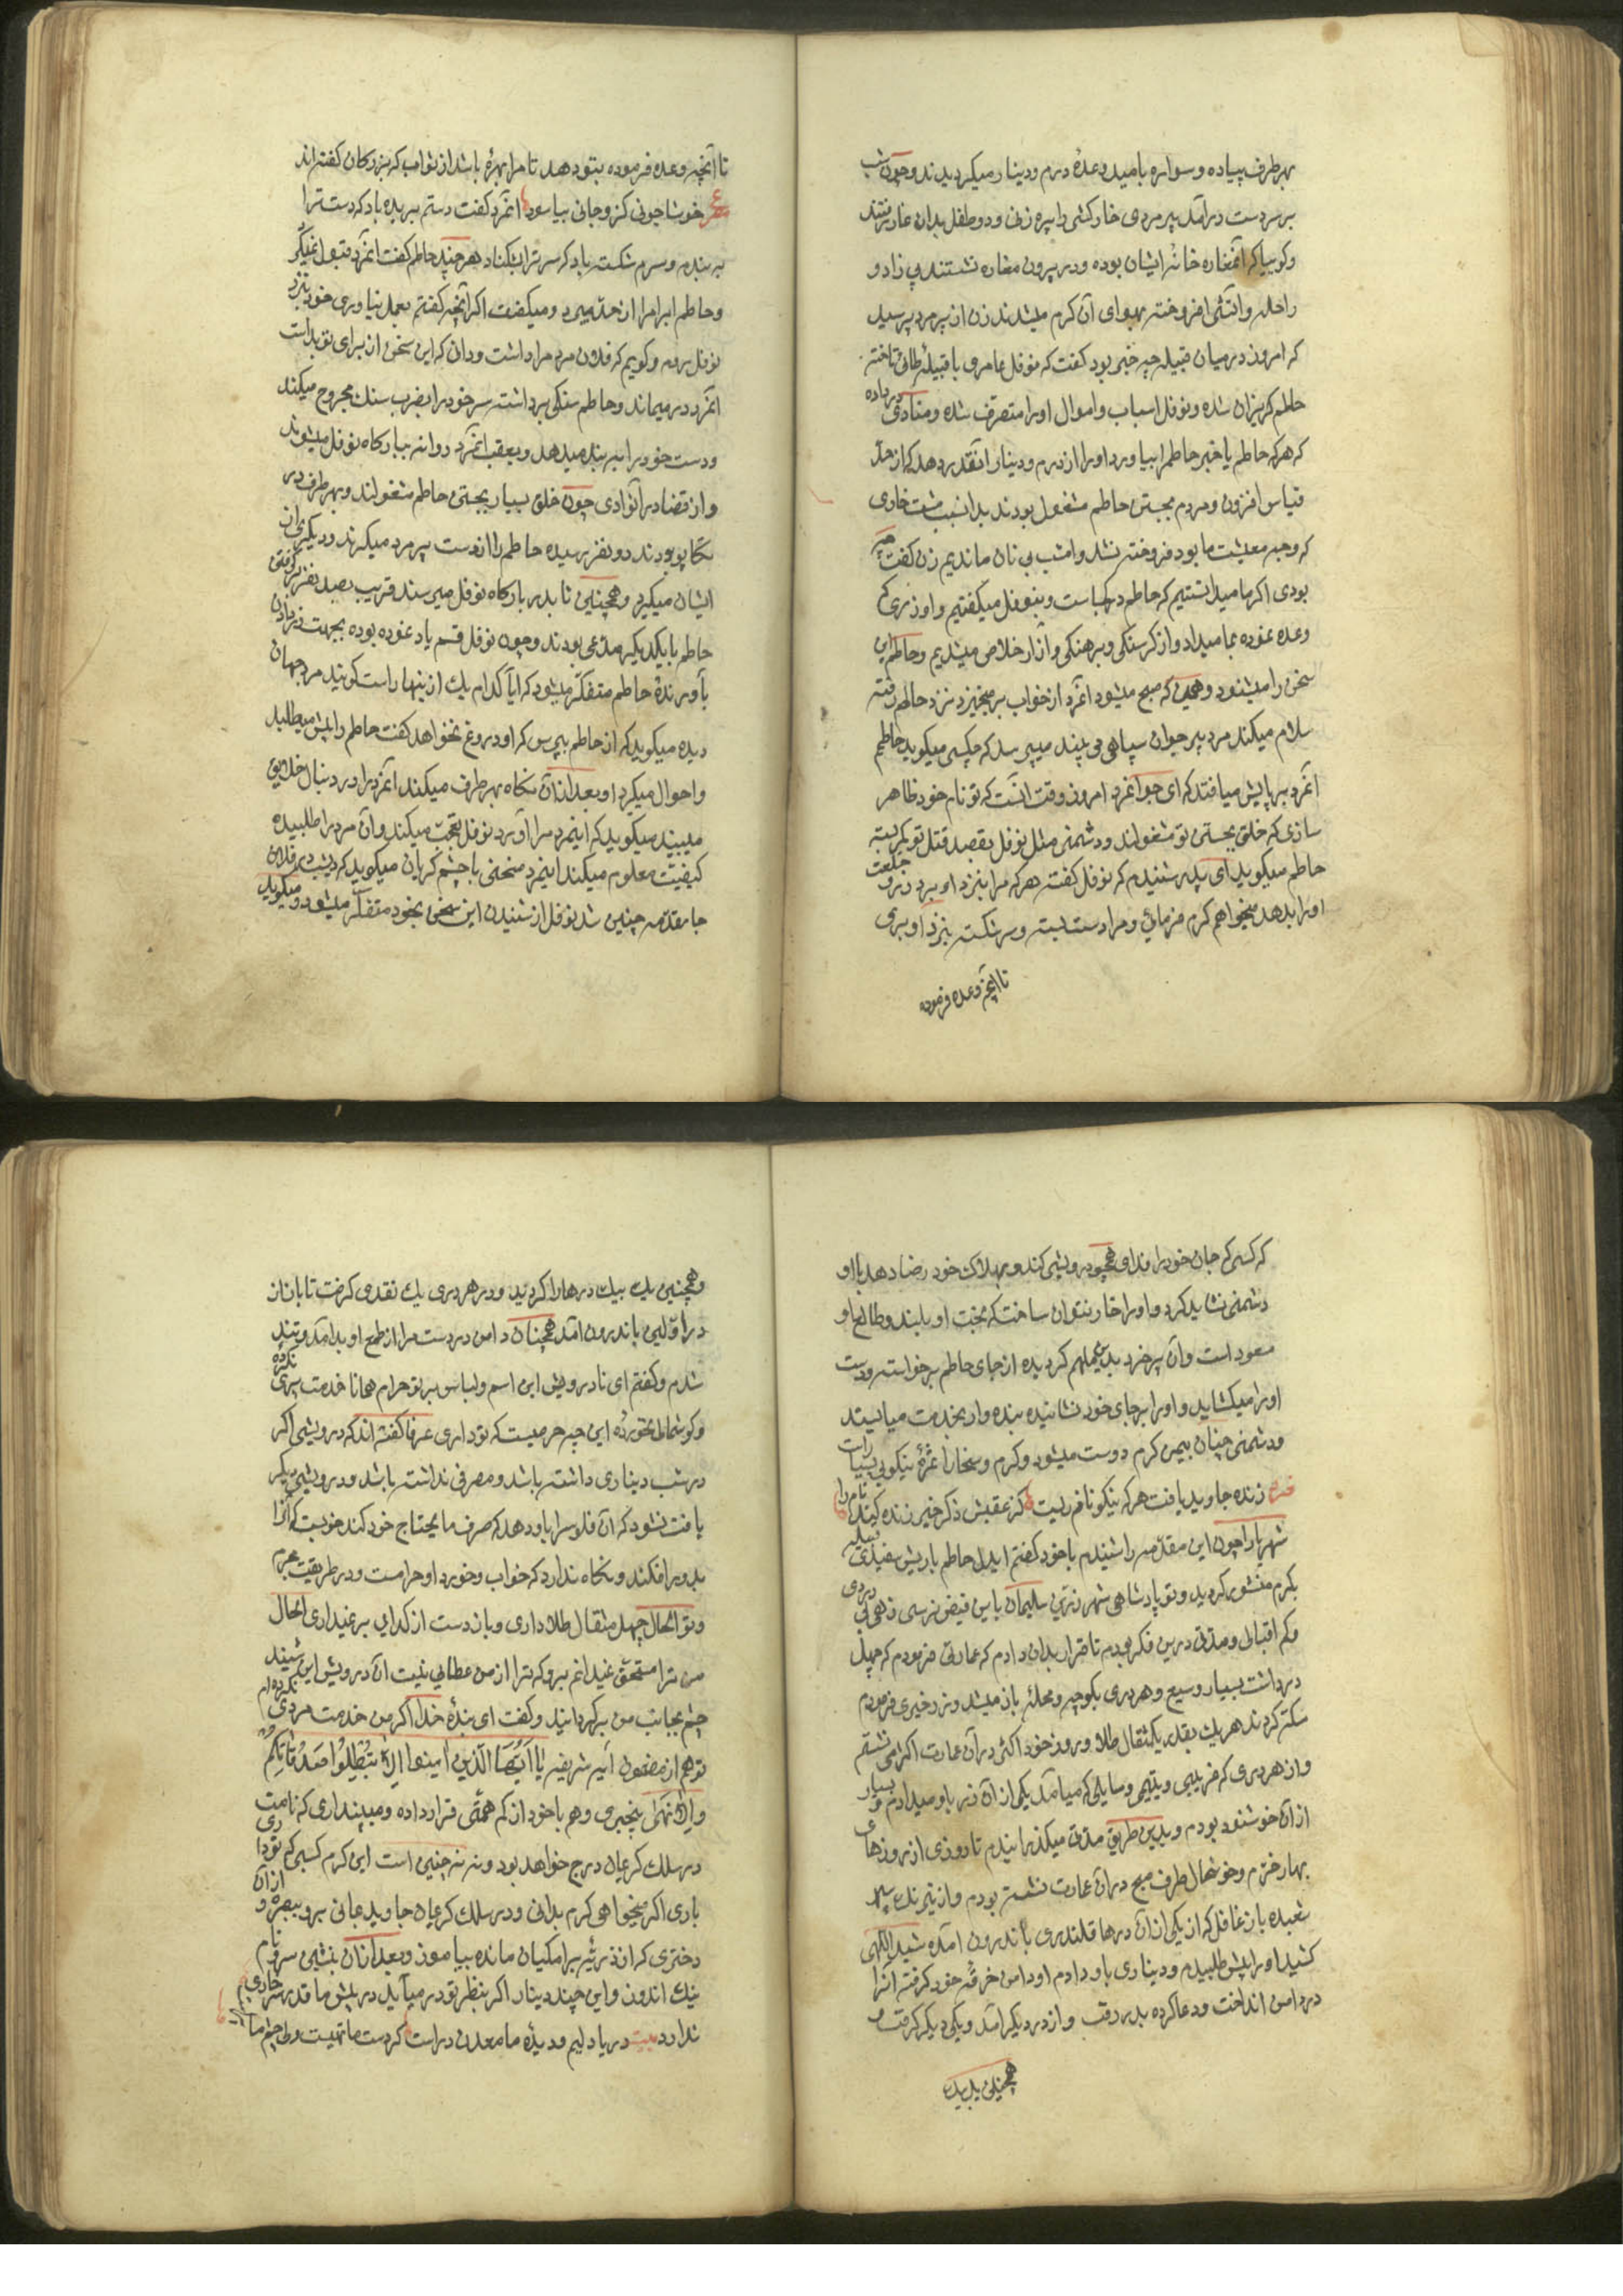 بهر طرف پیاده و سواره بامید وعدهٔ درم و دینار میکردیدند و چون شب
بر سر دست درآمد پیر مردی خارکشی را پیره زنی و دو طفل بدان غار رفتند
وکوییا که آنمغاره خانهٔ ایشان بوده و در بیرون مغاره نشستند بی زاد و
راحله و آتشی افروخته بهوای آن کرم میشدند زن از پیر مرد پرسید
که امروز در میان قبیله چه خبر بود کفت که نوفل عامری با قبیلهٔ طائی تاخته
حاطم کریزان شده و نوفل اسباب و اموال اورا متصرف شده و منادی در داده
که هر که حاطم یا خبر حاطم را بیاورد اورا از درم و دینار آنقدر دهد که از حد
قیاس افزون و مردم بجستن حاطم مشغول بودند بدانسبب مشت خاری
که وجه معیشت ما بود فروخته نشد و امشب بی نان ماندیم زن کفت چه
بودی اکر ما میدانستیم که حاطم در کجاست و بنوفل میکفتیم و او زری که
وعده نموده بما میداد و از کرسنکی و برهنکی و آزار خلاص میشدیم و حاطم این
سخن را میشنود و همین که صبح میشود آنمرد از خواب برمیخیزد نزد حاطم رفته
سلام میکند مرد پیر جوان سپاهی می بیند میپرسد که چکسی میکوید حاطم
آنمرد بر پایش میافتد که ای جوانمرد امروز وقت آنست که تو نام خود ظاهر
سازی که خلق بجستن تو مشغولند و دشمنی مثل نوفل بقصد قتل تو کمر بسته
حاطم میکوید ای پدر شنیدم که نوفل کفته هر که مرا بنزد او برد زر و خلعت
اورا بدهد میخواهم کرم فرمائی و مرا دست بسته و سر شکسته بنزد او بری
تا آنچه وعده فرموده
تا آنچه وعده فرموده بتو دهد تا مرا بهرهٔ باشد از ثواب که بزرکان کفته اند
ع خوشا جونی کزو جانی بیاسود آنمرد کفت دستم بریده باد که دست ترا
بر بندم و سرم شکسته باد که سر ترا بشکنا د هر چند حاطم کفت آنمرد قبول نمیکرد
و حاطم ابرام را از حد میبرد و میکفت اکر آنچه کفتم بعمل نیاوری خود بنزد
نوفل روم و کویم که فلان مرد مرا داشت و دان که این سخن از برای تو بد است
آنمرد در میماند و حاطم سنکی برداشته سر خود را بضرب سنک مجروح میکند
و دست خود را ببر بند میدهد و بعقب آنمرد روانه ببارکاه نوفل میشوند
و از قضا در آنوادی چون خلق بسیار بجستن حاطم مشغولند و بهر طرف در
تکاپو بودند دو نفر رسیده حاطم را از دست پیر مرد میکرند و دیکری از
ایشان میکیرد و همچنین تا بدر بارکاه نوفل میرسند قریب بصد نفر بکرفتن
حاطم با یکدیکر مدعی بودند و چون نوفل قسم یاد نموده بوده بجهت زر دادن
بآورندهٔ حاطم متفکر میشود که ایا کدام یک از ینها راست کویند مرد جهان
دیده میکوید که از حاطم بپرس که او دروغ نخواهد کفت حاطم را پیش میطلبد
و احوال میکرد او بعد از آن نکاه بهر طرف میکند آنمرد را در دنبال خلایق
میبیند میکوید که اینمرد مرا آورد نوفل تعجب میکند و آن مرد را طلبیده
کیفیت معلوم میکند اینمرد منحنی با چشم کریان میکوید که دیشب در فلان
جا مقدمه چنین شد نوفل از شنیدن این سخن بخود متفکر میشود و میکوید
که کسی که جان خود را فدای همچو درویشی کند و بهلاک خود رضا دهد با او
دشمنی نشاید کرد و اورا خار نتوان ساخت که بخت او بلند و طالع او
مسعود است و آن پیر خرد بدین ملهم کردیده از جای حاطم برخواسته دست
اورا میکشاید و اورا بر جای خود نشانیده بنده وار بخدمت میایستد
و دشمنی چنان بیمن کرم دوست میشود و کرم و سخا را ثمرهٔ نیکویی بسیار است
زنده جاوید یافت هر که نیکو نام زیست کز عقبش ذکر خیر زنده کند نام را
شهریارا چون این مقدمه را شنیدم با خود کفتم ایدل حاطم باریش سفیدی قبیله
بکرم منشور کردید و تو پادشاهی شهر زرین سلیمان باین فیض نرسی زهی بی دردی
و کم اقبالی و مدتی درین فکر بودم تا قرار بدان دادم که عمارتی فرمودم که چهل
در داشت بسیار وسیع و هر دری بکوچه و محله باز میشد و زر خیری فرمودم
سکه کردند هر یک بقدر یکمثقال طلا و روز خود اکثر در آن عمارت اکرامی نشستم
و از هر دری که غریبی و یتیمی و سایلی که میآمد یکی از آن زر باو میدادم و بسیار
از آن خوشنود بودم و بدین طریق مدتی میکذرانیدم تا روزی از روزهای
بهار خرم و خوشحال طرف صبح در آن عمارت نشسته بودم و از نیرنک سپهر
شعبده باز غافل که از یکی از آن درها قلندری باندرون آمده شیء اللهی
کشید اورا پیش طلبیدم و دیناری باو دادم او دامن خرقه خود کرفته آنرا
در دامن انداخت و دعا کرده بدر رفت و از در دیکر آمد و یکی دیکر کرفت و
همچنین یک بیک
و همچنین یک بیک درها را کردید و در هر دری یک نقدی کرفت تا باز از
در اولین باندرون آمد همچنان دامن در دست مرا از طمع او بد آمد و تند
شدم و کفتم ای نادرویش این اسم و لباس بر تو حرام همانا خدمت پیری نکرده
و کوشمال نخوردهٔ این چه حرصیست که تو داری عرفا کفته اند که درویشی اکر
در شب دیناری داشته باشد و مصرفی نداشته باشد و درویشی دیکر
یافت نشود که آن فلوس را باو دهد که صرف مایحتاج خود کند خوبست که آنرا
بدور افکند و نکاه ندارد که خواب و خورد او حرامست و در طریقت مجرم
و تو الحال چهل مثقال طلا داری و باز دست از کدایی بر نمیداری الحال
من ترا مستحق نمیدانم برو که ترا از من عطایی نیست آن درویش این شنید
چشم بجانب من بر کردانید و کفت ای بندهٔ خدا اکر من خدمت مردی نکرده ام
تو هم از مضمون آیه شریفه یا أیها الذین امنوا لا تبطلوا صدقاتکم
و الاذی بیخبری و هم با خود از کم همتی قرار داده و میپنداری که نامت
در سلک کریمان درج خواهد بود و نه نه چنین است این کرم کسبی که تو داری
باری اکر میخواهی کرم بدانی و در سلک کریمان جاوید بمانی برو ببصره و از آن
دختری که از ذریهٔ برامکیان مانده بیاموز و بعد از آن بنشین سر و نام
نیک اندوز و این چند دینار اکر بنظر تو در میآید در پیش ما قدر
ندارد بیت دریا دلیم و دیدهٔ ما معدن در است کر دست ما تهیست ولی چشم ما